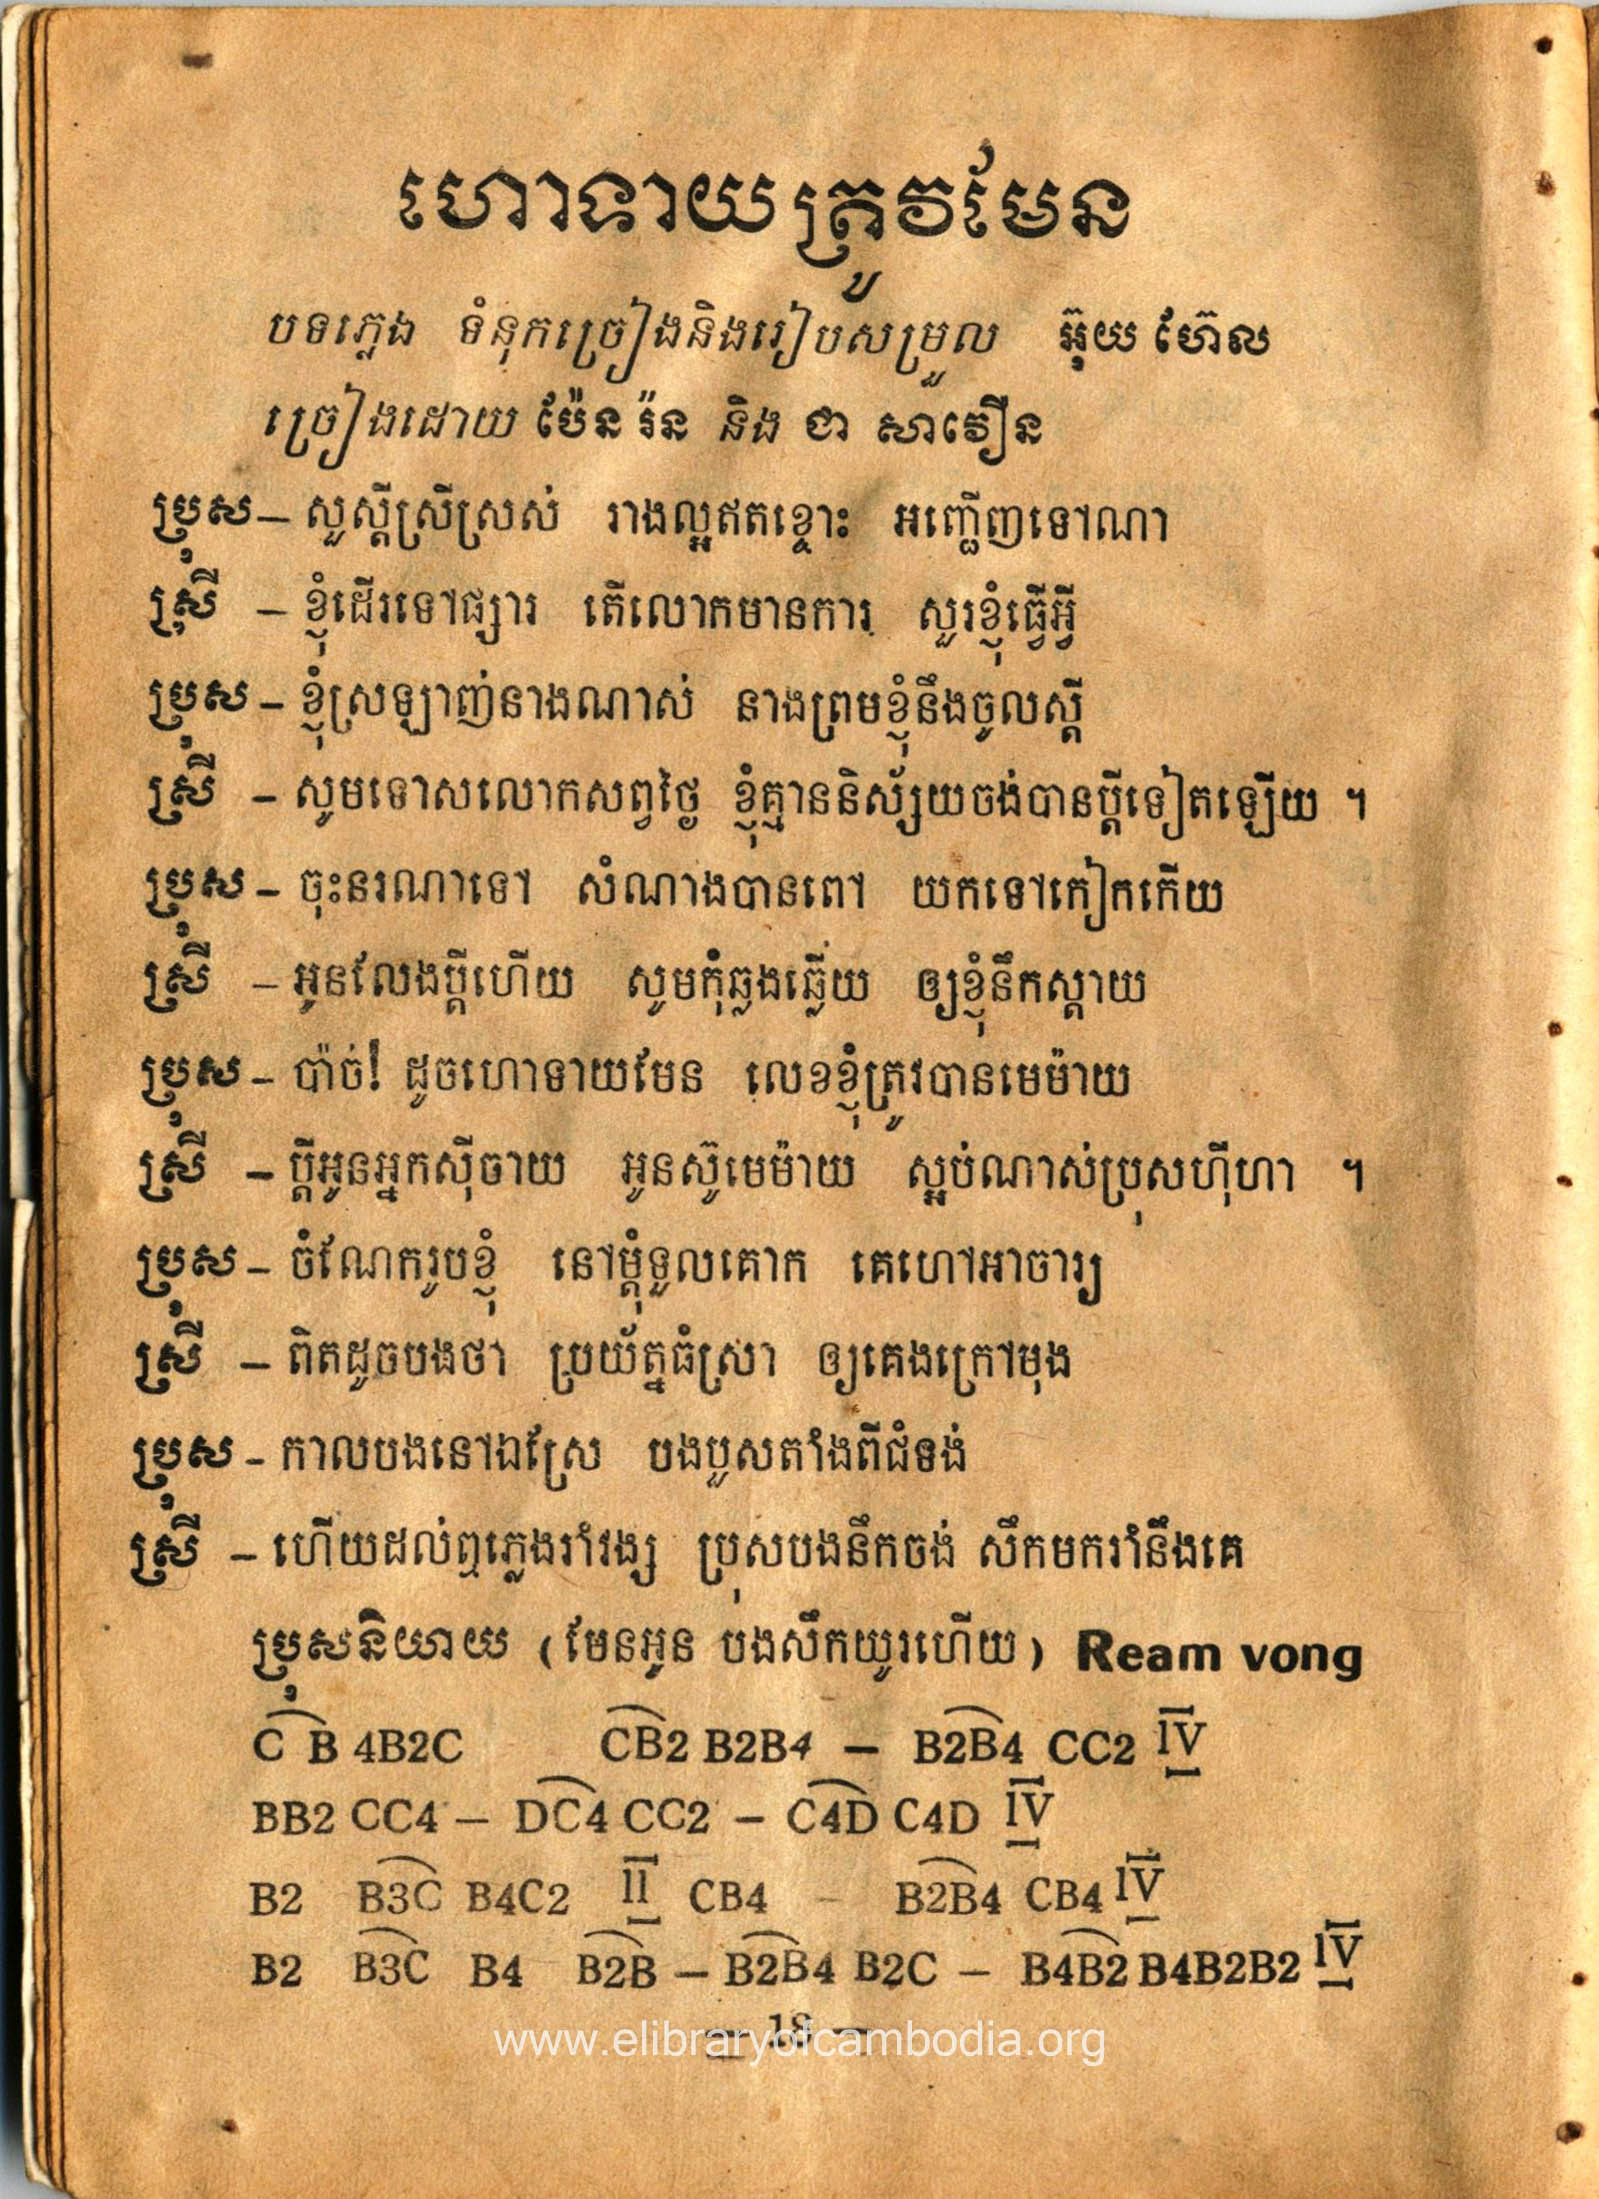 ហោទាយត្រូវមែន
បទភ្លេង ទំនុកច្រៀងនិងរៀបសម្រួល អ៊ុយ ហ៊ែល
ច្រៀងដោយ ប៉ែន រ៉ន និង ជា សាវឿន
ប្រុស – សួស្តីស្រីស្រស់ រាងល្អឥតខ្ចោះ អញ្ជើញទៅណា
ស្រី – ខ្ញុំដើរទៅផ្សារ តើលោកមានការ សួរខ្ញុំធ្វើអ្វី
ប្រុស – ខ្ញុំស្រឡាញ់នាងណាស់ នាងព្រមខ្ញុំនឹងចូលស្តី
ស្រី – សូមទោសលោកសព្វថ្ងៃ ខ្ញុំគ្មាននិស្ស័យចង់បានប្តីទៀតឡើយ ។
ប្រុស – ចុះនរណាទៅ សំណាងបានពៅ យកទៅកៀកកើយ
ស្រី – អូនលែងប្តីហើយ សូមកុំឆ្លងឆ្លើយ ឲ្យខ្ញុំនឹកស្តាយ
ប្រុស – ប៉ាច់! ដូចហោទាយមែន លេខខ្ញុំត្រូវបានមេម៉ាយ
ស្រី – ប្តីអូនអ្នកស៊ីចាយ អូនស៊ូមេម៉ាយ ស្អប់ណាស់ប្រុសហ៊ីហា ។
ប្រុស – ចំណែករូបខ្ញុំ នៅម្តុំទួលគោក គេហៅអាចារ្យ
ស្រី – ពិតដូចបងថា ប្រយ័ត្នធំស្រា ឲ្យគេងក្រៅមុង
ប្រុស – កាលបងនៅឯស្រែ បងបួសតាំងពីជំទង់
ស្រី – ហើយដល់ឮភ្លេងរាំវង្ស ប្រុសបងនឹកចង់ សឹកមករាំនឹងគេ
ប្រុសនិយាយ (មែនអូន បងសឹកយូរហើយ) Ream vong
C B 4B2C CB2 B2B4 – B2B4 CC2 IV
BB2 CC4 – DC4 CC2 – C4D C4D IV
B2 B3C B4C2 II CB4 – B2B4 CB4 IV
B2 B3C B4 B2B – B2B4 B2C – B4B2 B4B2B2 IV
— 18 —
www.elibraryofcambodia.org